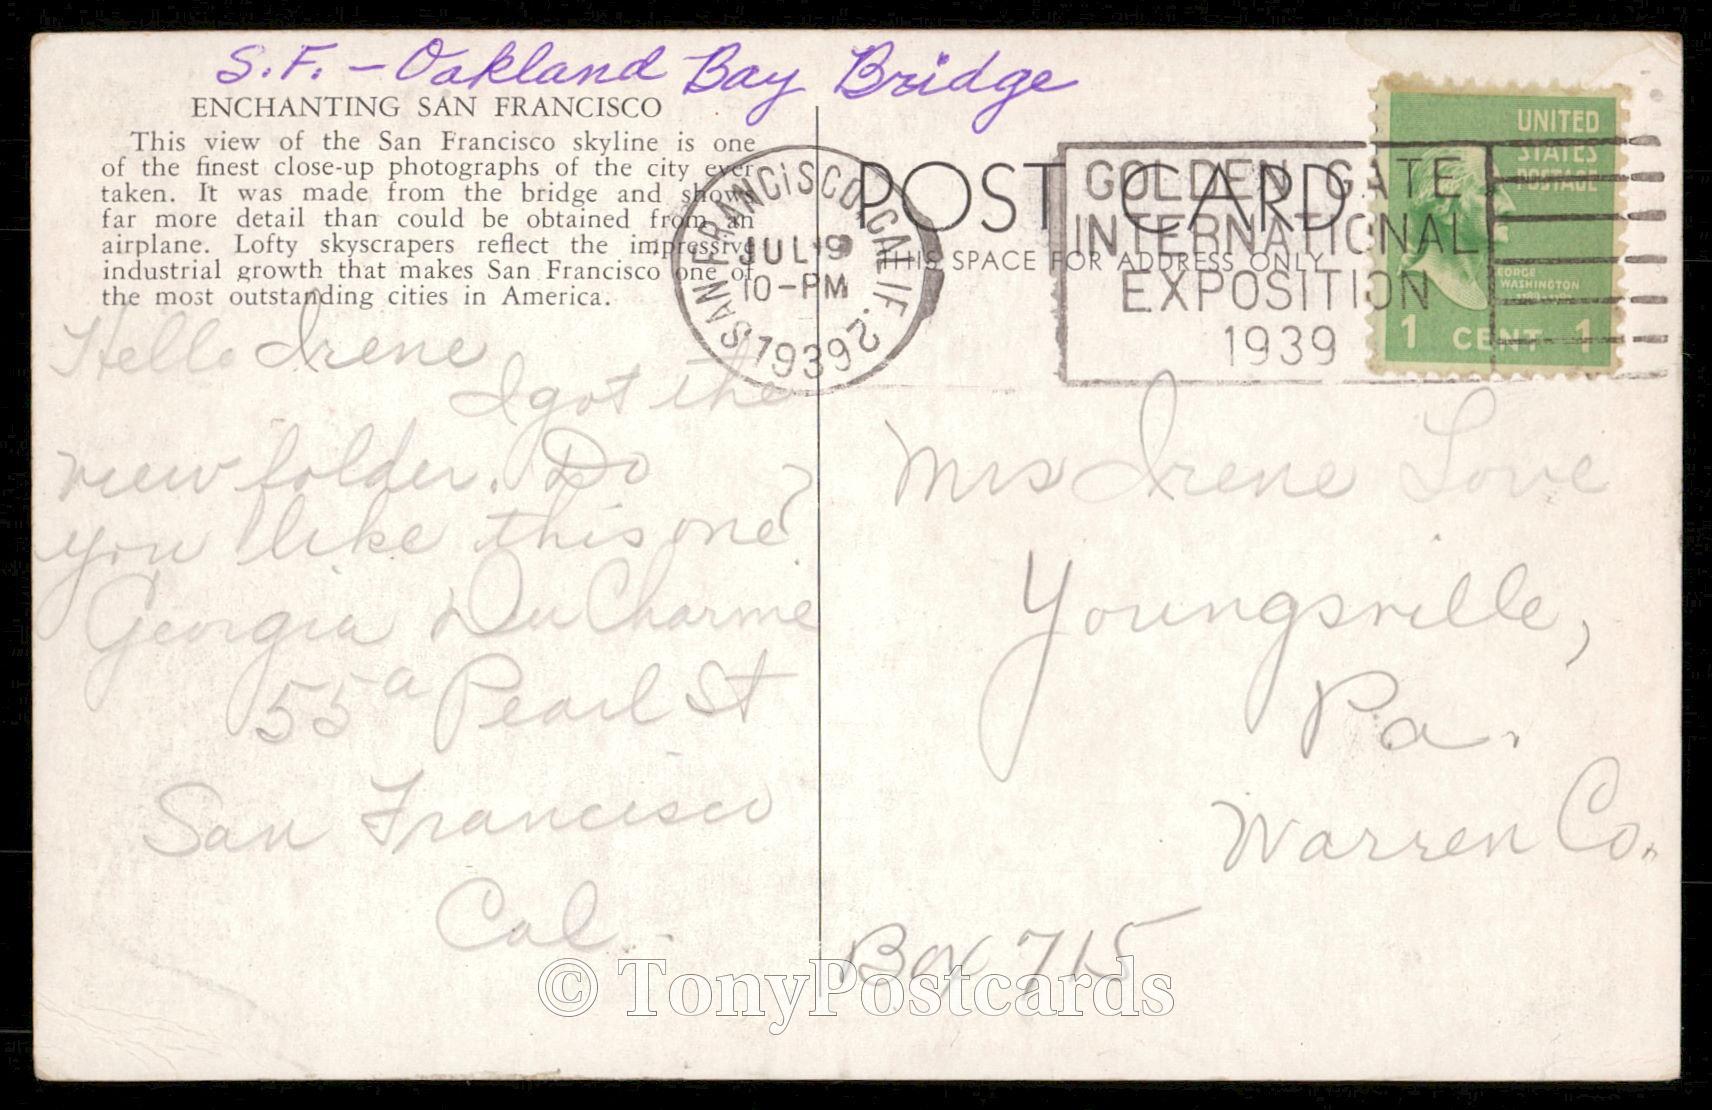 S.F. – Oakland Bay Bridge
ENCHANTING SAN FRANCISCO
This view of the San Francisco skyline is one
of the finest close-up photographs of the city ever
taken. It was made from the bridge and shows
far more detail than could be obtained from an
airplane. Lofty skyscrapers reflect the impressive
industrial growth that makes San Francisco one of
the most outstanding cities in America.
Hello Irene
I got the
view folder. Do
you like this one?
Georgia DuCharme
55a Pearl St
San Francisco
Cal.
SAN FRANCISCO, CALIF. 2
JUL 9
10-PM
1939
POST CARD
THIS SPACE FOR ADDRESS ONLY
GOLDEN GATE
INTERNATIONAL
EXPOSITION
1939
UNITED
STATES
POSTAGE
GEORGE
WASHINGTON
1 CENT 1
Mrs Irene Love
Youngsville,
Pa.
Warren Co.
Box 715
© TonyPostcards